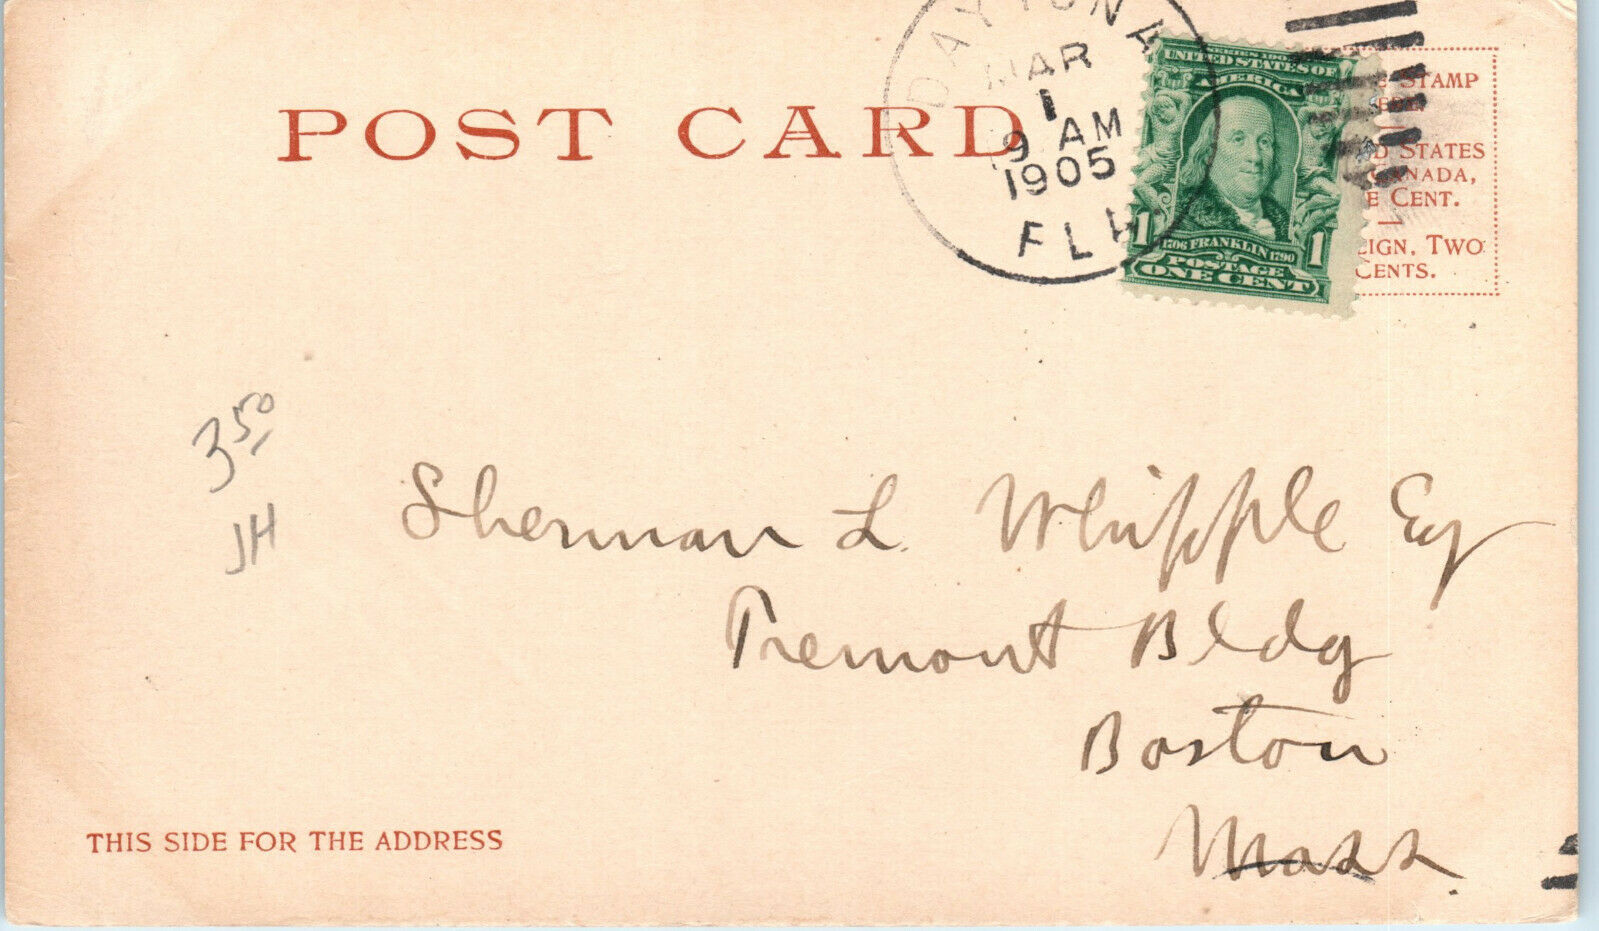 POST CARD
DAYTONA
MAR
1
9 AM
1905
FLA
UNITED STATES OF
AMERICA
1 1706 FRANKLIN 1790 1
POSTAGE
ONE CENT
STAMP
D STATES
CANADA,
E CENT.
EIGN, TWO
CENTS.
3 50
JH
Sherman L. Whipple Esq
Tremont Bldg
Boston
Mass.
THIS SIDE FOR THE ADDRESS